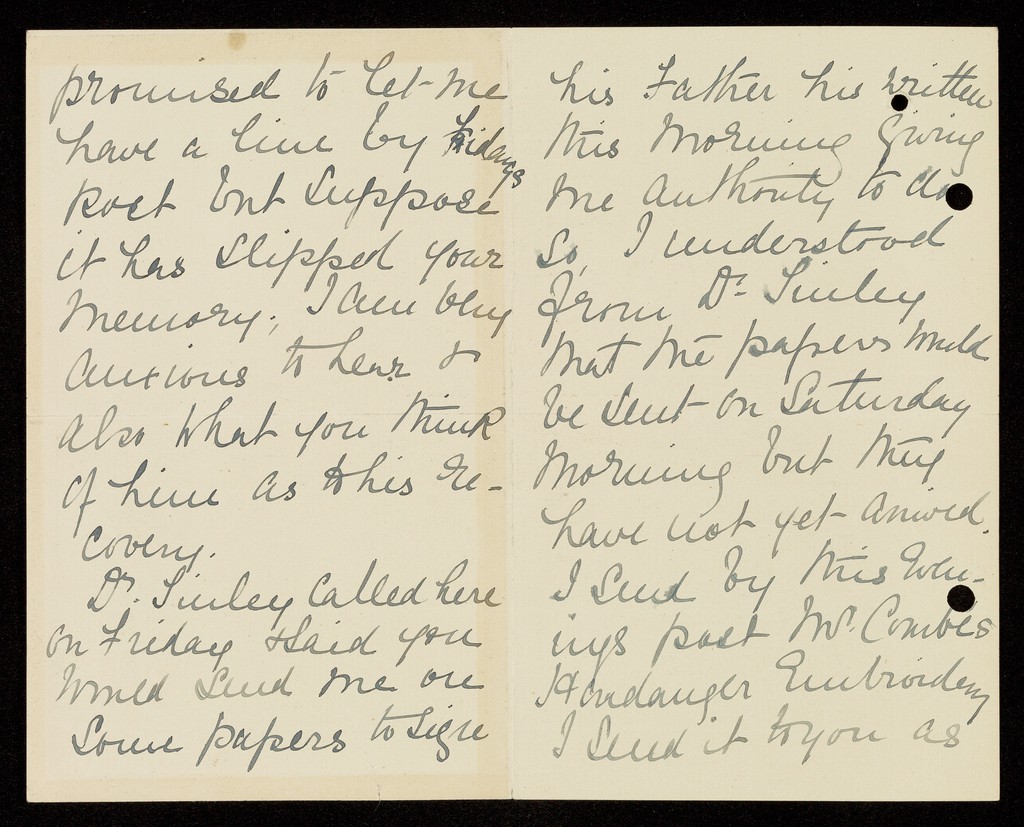 promised to let me
have a line by Fridays
post but suppose
it has slipped your
memory; I am very
anxious to hear &
also what you think
of him as to his re-
covery.
Dr. Tinley called here
on Friday & said you
would send me on
some papers to sign
his Father his written
this morning giving
me authority to do
so, I understood
from Dr. Tinley
that the papers would
be sent on Saturday
morning but they
have not yet arrived.
I send by this even-
ings post Mr. Combes
Hardanger Embroidery
I send it to you as